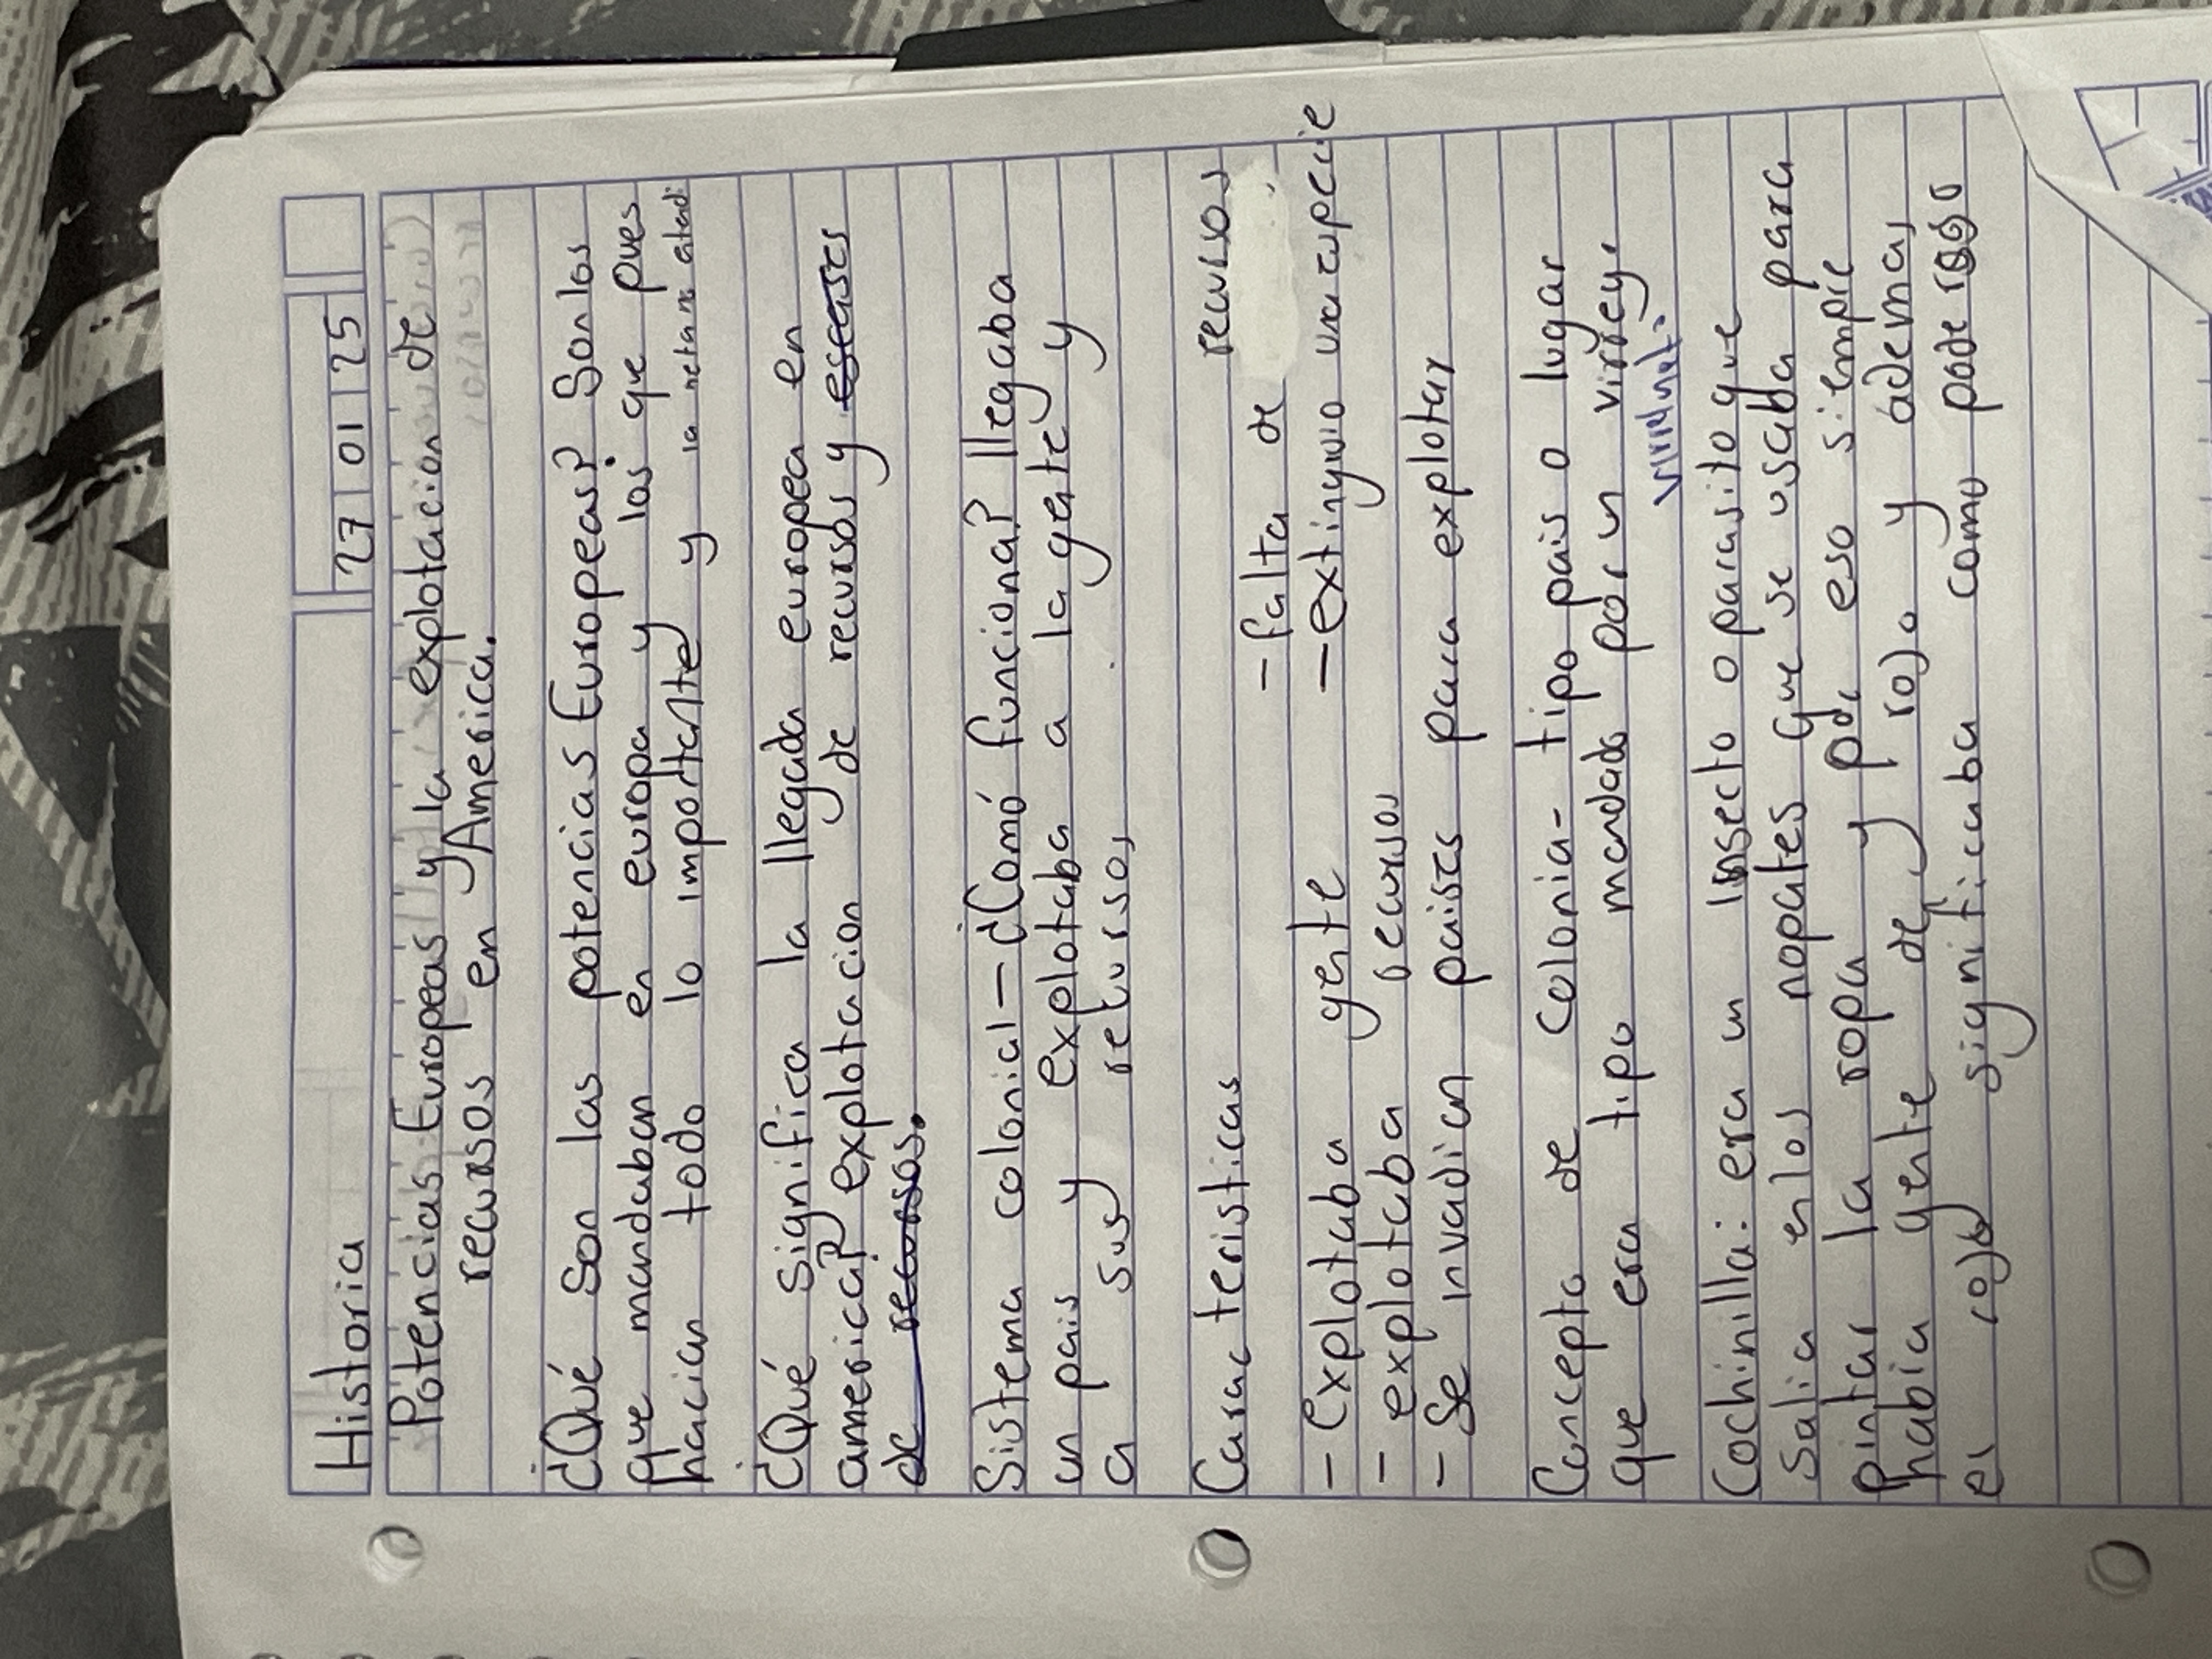 Historia
27 01 25
Potencias Europeas y la explotacion de
recursos en America.
¿Qué son las potencias Europeas? Son los
que mandaban en europa y los que pues
hacian todo lo importante y la neta no atendi
¿Qué significa la llegada europea en
america? explotacion de recursos y escases
de recursos.
Sistema colonial - ¿Comó funciona? llegaba
un pais y explotaba a la gente y
a sus recursos
Caracteristicas
- falta de recursos
- explotaba gente
- extinguio una especie
- explotaba recursos
- Se invadian paises para explotar
Concepto de colonia - tipo pais o lugar
que era tipo mandado por un virrey.
Cochinilla: era un insecto o parasito que
salia en los nopales que se usaba para
pintar la ropa y por eso siempre
habia gente de rojo y ademas
el rojo significaba como poderoso